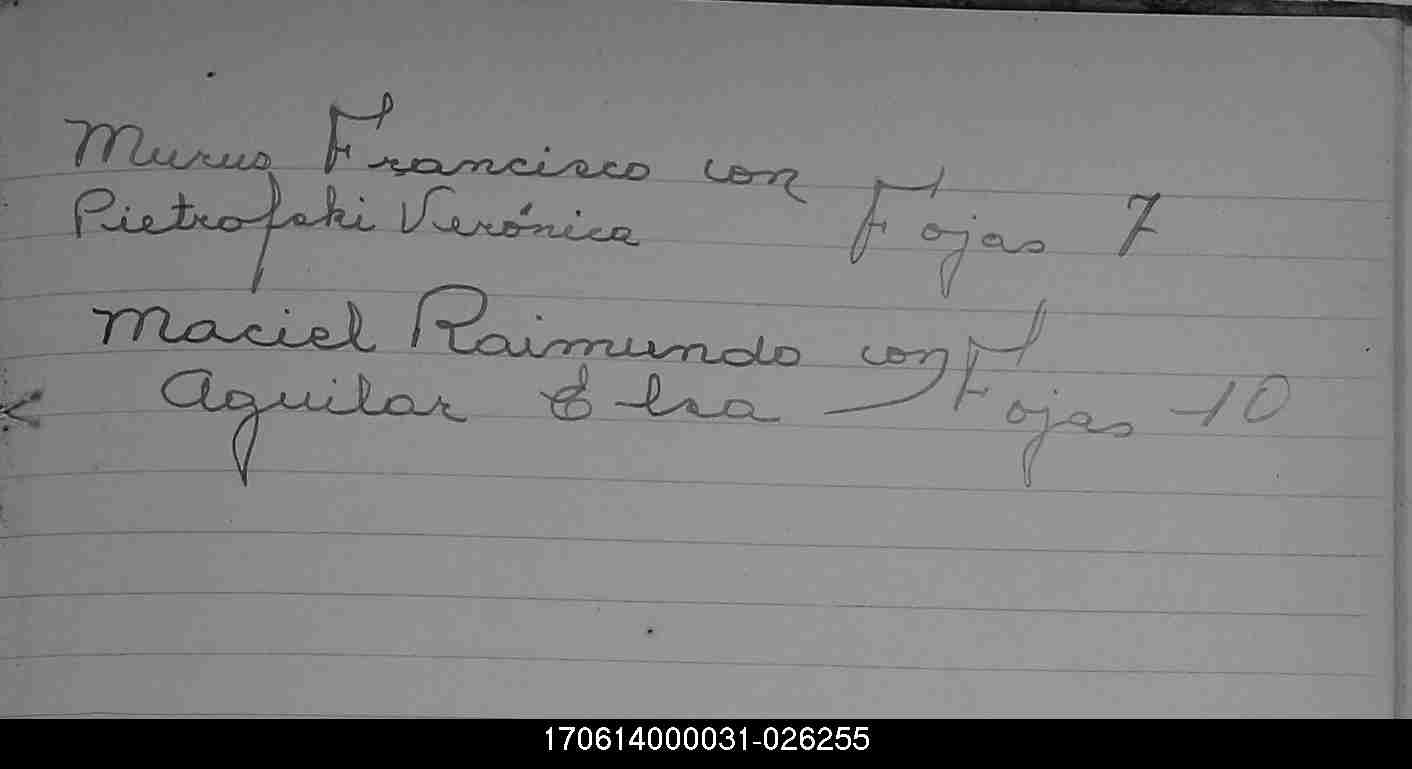 Murus Francisco con
Pietrofski Verónica Fojas 7
Maciel Raimundo con
Aguilar Elsa — Fojas 10
170614000031-026255